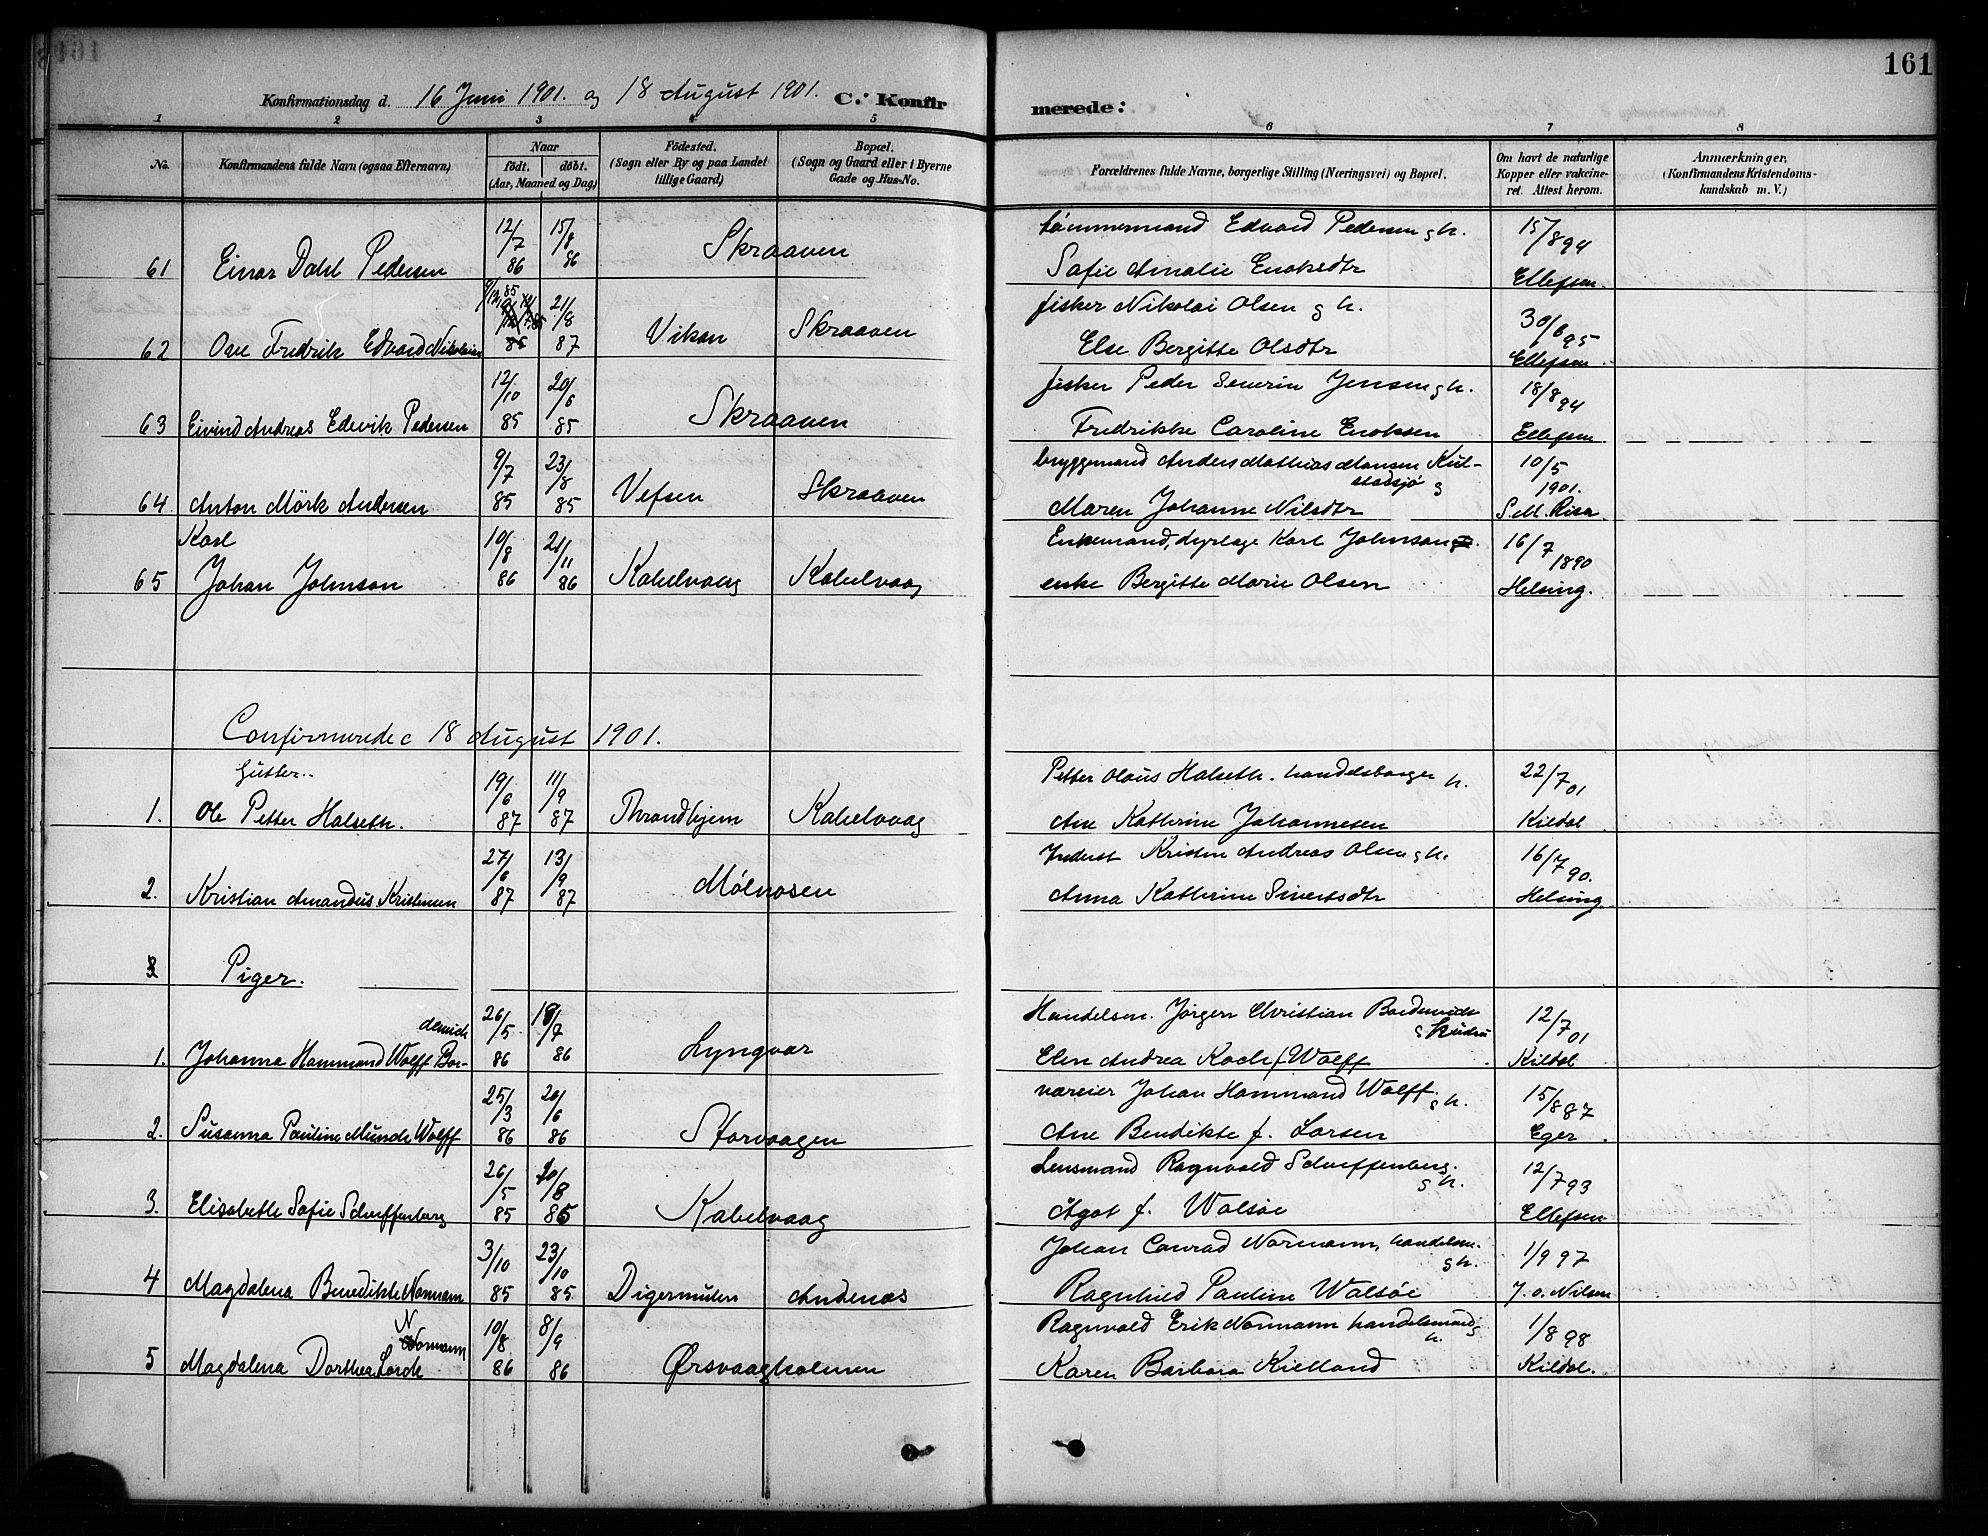 161
Konfirmationsdag d. 16 Juni 1901. og 18 August 1901. C. Konfir
merede:
1 2 3 4 5 6 7 8
No. Konfirmandens fulde Navn (ogsaa Efternavn) Naar født. døbt. (Aar, Maaned og Dag) Fødested. (Sogn eller By og paa Landet tillige Gaard) Bopæl. (Sogn og Gaard eller i Byerne Gade og Hus-No. Forældrenes fulde Navne, borgerlige Stilling (Næringsvei) og Bopæl. Om havt de naturlige Kopper eller vakcineret. Attest herom. Anmærkninger. (Konfirmandens Kristendomskundskab m. V.)
61 Einar Dahl Pedersen 12/7 86 15/8 86 Skraaven tømmermand Edvard Pedersen g h. 15/8 94
Sofie Amalie Enoksdtr Ellefsen.
62 Ove Fredrik Edvard Nikolaisen 9/12 85 21/8 87 Vikan Skraaven fisker Nikolai Olsen g h. 30/6 95
Else Bergitte Olsdtr Ellefsen.
63 Eivind Andreas Edevik Pedersen 12/10 85 20/6 85 Skraaven fisker Peder Severin Jensen g h. 18/8 94
Fredrikke Caroline Enoksen Ellefsen.
64. Anton Mörk Andersen 9/7 85 23/8 85 Vefsen Skraaven bryggemand Anders Mathias Hansen
g
Maren Johanne Nilsdtr 10/5 1901. S. M. Risa.
Karl
65 Johan Johnson 10/8 86 21/11 86 Kabelvaag Kabelvaag Enkemand, Karl Johnson 16/7 1890
enke Bergitte Marie Olsen Helsing.
Confirmerede 18 August 1901.
Gutter.
1. Ole Petter Halseth. 19/6 87 11/9 87 Throndhjem Kabelvaag Petter Olaus Halseth. handelsborger h. 22/7 01
Ane Kathrine Johannesen Kildal
2. Kristian Amandus Kristensen 27/6 87 13/9 87 Mølnosen Inderst Kristen Andreas Olsen g h. 16/7 90.
Anna Kathrine Sivertsdtr Helsing.
Piger.
1. Johanna Hammond Wolff Bor-
devick 26/5 86 18/7 86 Lyngvær Handelsm. Jörgen Christian Bordevick
g
Elen Andrea Koch f. Wolff 12/7 01 Kildal
2. Susanna Pauline Munch Wolff 25/3 86 20/6 86 Storvaagen væreier Johan Hammond Wolff. g h. 15/8 87
Ane Bendikte f. Larsen Eger.
3. Elisabeth Sofie Scheffenberg 26/5 85 20/8 85 Kabelvaag Lensmand Ragnvald Scheffenberg. g h. 12/7 93
Ågot f. Walsöe Ellefsen
4 Magdalena Benedikte Normann 3/10 85 23/10 85. Digermulen Andenæs Johan Conrad Normann, handelsm. g h. 1/9 97
Ragnhild Pauline Walsöe J. O. Nilsen
5 Magdalena Dorthea Lorck Normann 10/8 86 8/9 86 Ørsvaagholmen Ragnvald Erik Normann handelsmand g h. 1/8 98
Karen Barbara Kielland Kildal.